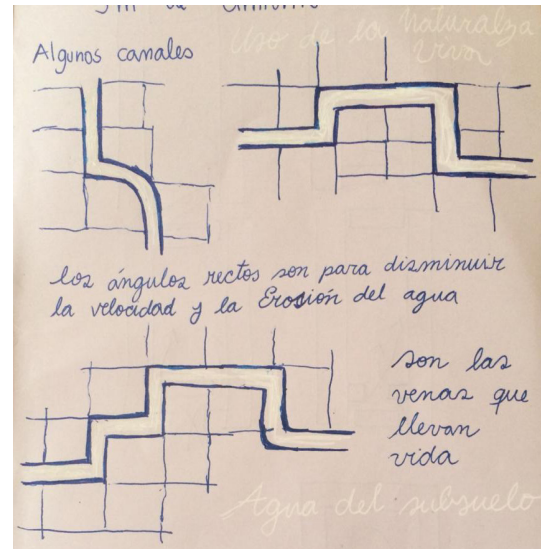 Algunos canales
Uso de la naturalza
viva
los ángulos rectos son para dizminuir
la velocidad y la Erosión del agua
son las
venas que
llevan
vida
Agua del subsuelo